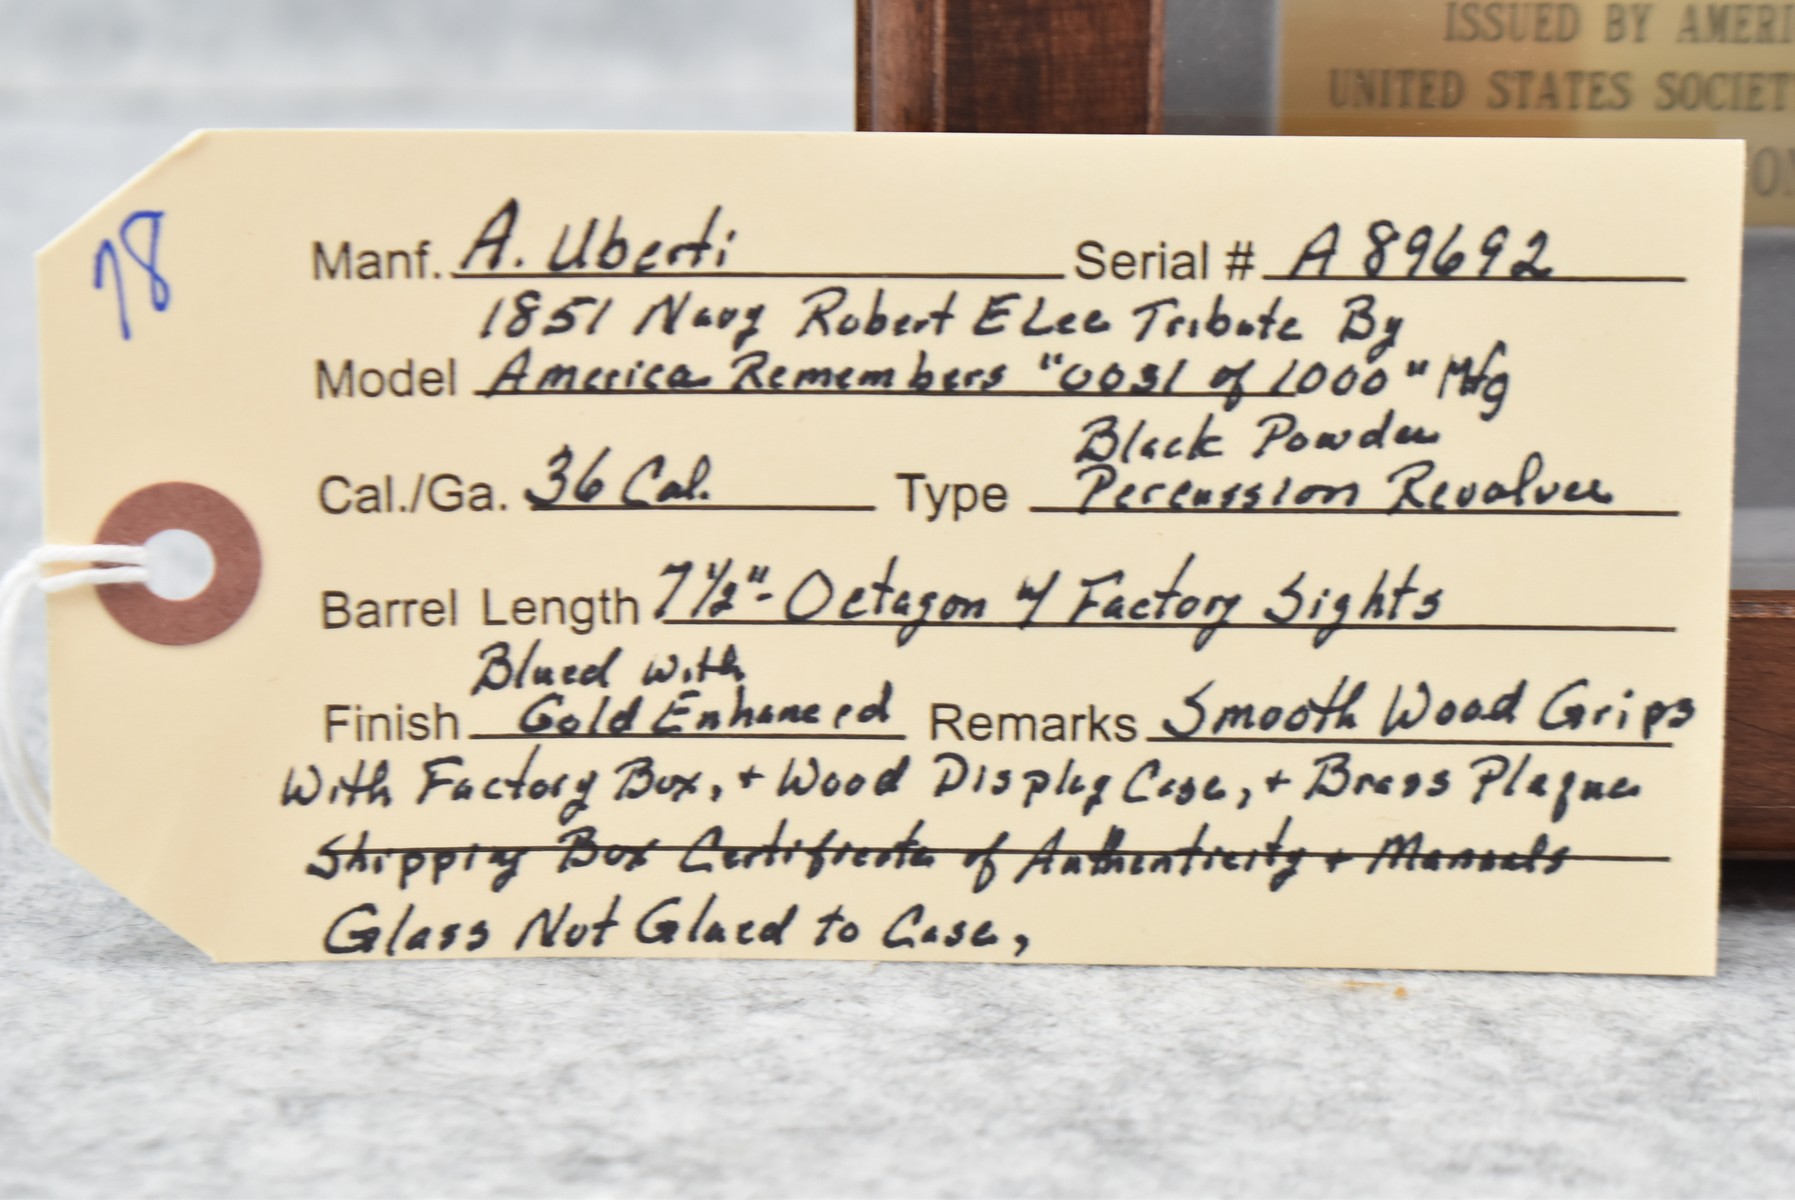 ISSUED BY AMERI
UNITED STATES SOCIET
ON
78
Manf. A. Uberti Serial # A89692
1851 Navy Robert E Lee Tribute By
Model America Remembers "0031 of 1000" Mfg
Black Powder
Cal./Ga. 36 Cal. Type Percussion Revolver
Barrel Length 7 1/2"- Octagon w/ Factory Sights
Blued with
Finish Gold Enhanced Remarks Smooth Wood Grips
With Factory Box, + Wood Display Case, + Brass Plaque
Shipping Box Certificate of Authenticity + Manuals
Glass Not Glued to Case,